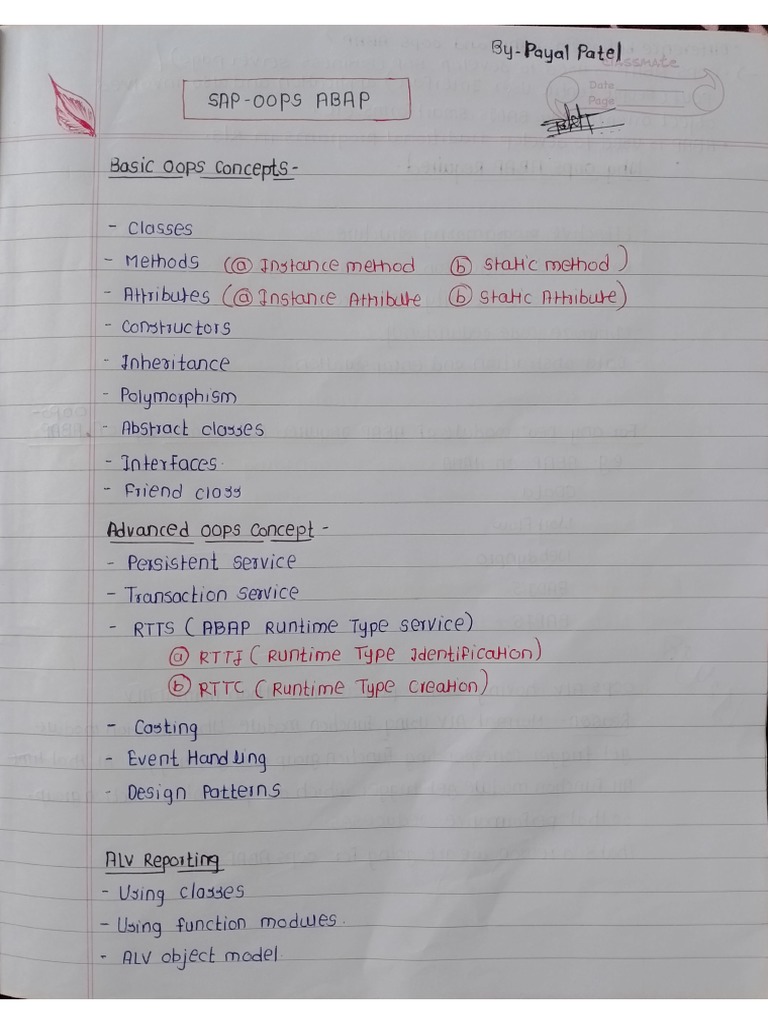 By- Payal Patel
classmate
Date
Page
SAP-OOPS ABAP
Basic OOPS Concepts-
- Classes
- Methods (ⓐ Instance method ⓑ Static method)
- Attributes (ⓐ Instance Attribute ⓑ Static Attribute)
- Constructors
- Inheritance
- Polymorphism
- Abstract classes
- Interfaces.
- Friend class
Advanced OOPS Concept -
- Persistent Service
- Transaction Service
- RTTS ( ABAP Runtime Type Service)
ⓐ RTTI ( Runtime Type Identification)
ⓑ RTTC ( Runtime Type Creation)
- Casting
- Event Handling
- Design Patterns
ALV Reporting
- Using classes
- Using function modules.
- ALV object model.